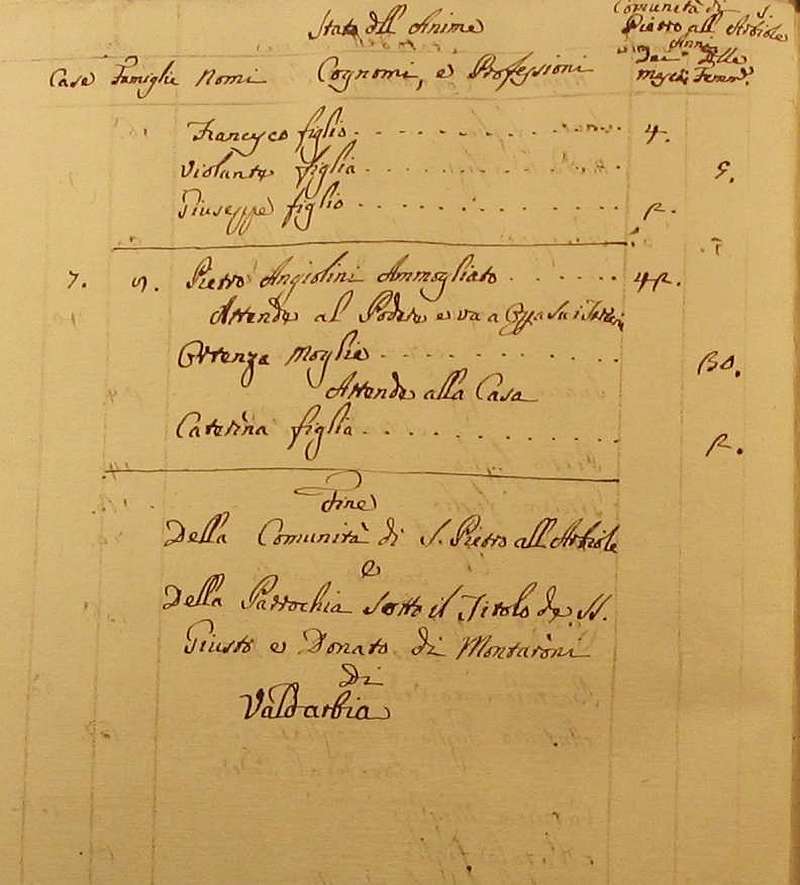 Comunità di S.
Stato dell Anime Pietro all Arbiole
Anni
Dei Delle
Case Famiglie Nomi Cognomi, e Professioni Maschi Femm.
Francesco figlio 4.
Violante figlia 9.
Giuseppe figlio 2.
7. 9. Pietro Angiolini Ammogliato 42.
Attende al Podere e va a
Ortenza Moglie 30.
Attende alla Casa
Caterina figlia 2.
Fine
Della Comunità di S. Pietro all Arbiole
e
Della Parrochia sotto il Titolo de SS.
Giusto e Donato di Montaroni
Di
Valdarbia